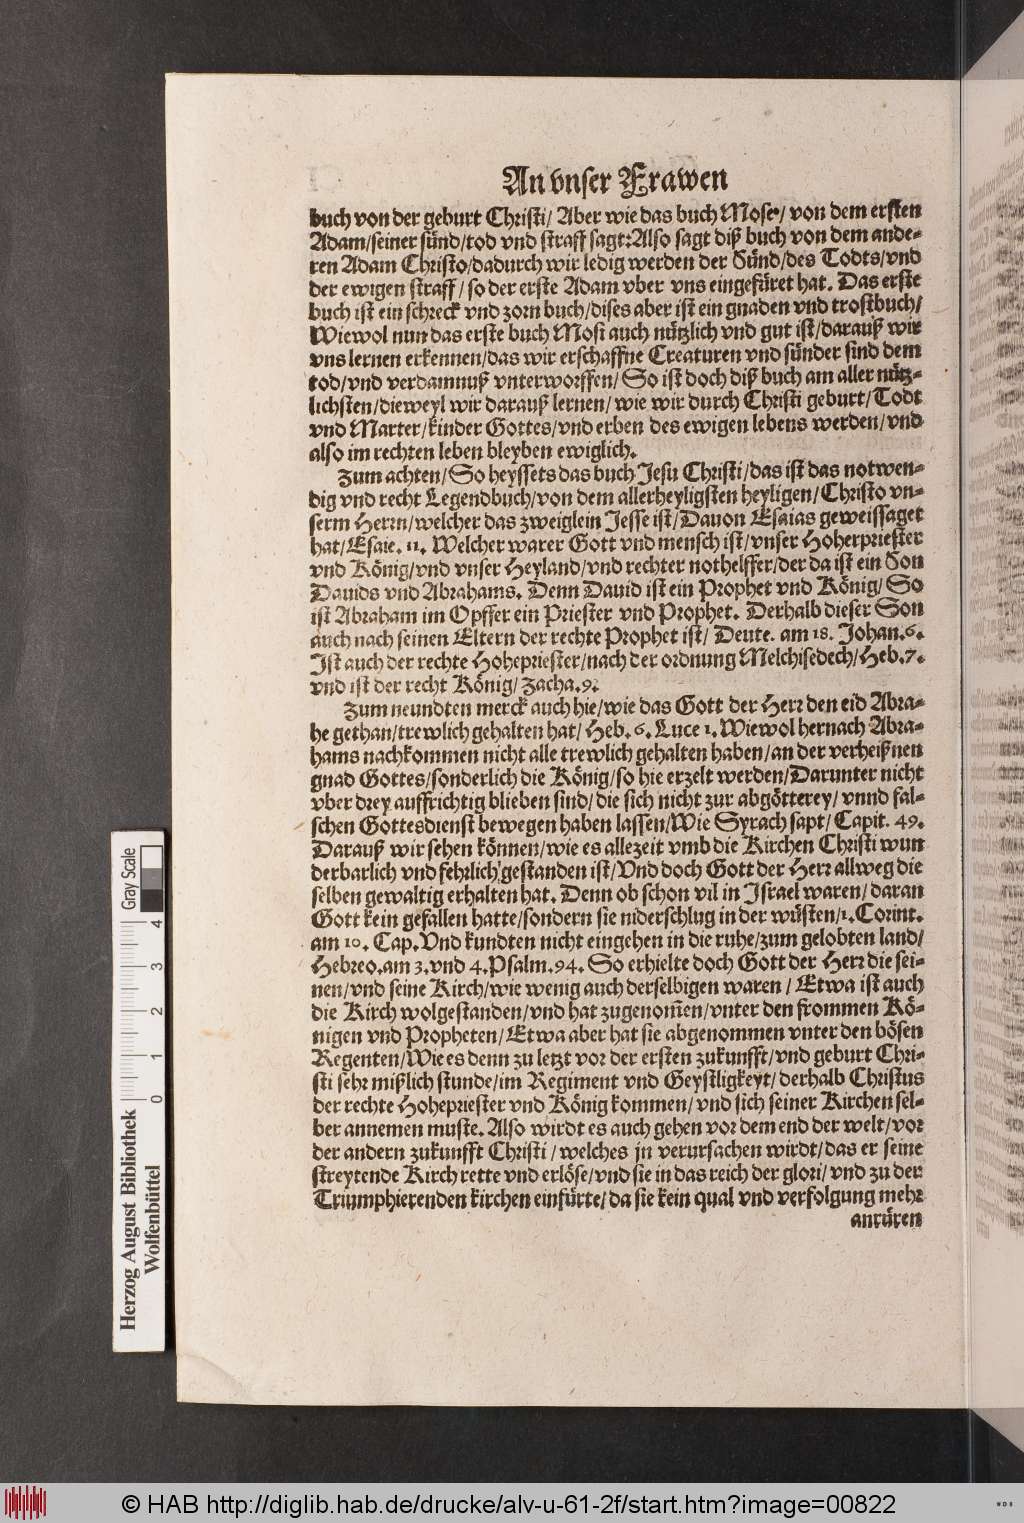 An vnser Frawen
buch von der geburt Christi/ Aber wie das buch Mose/ von dem ersten
Adam/seiner sünd/tod vnd straff sagt:Also sagt diß buch von dem ande-
ren Adam Christo/dadurch wir ledig werden der Sünd/des Todts/vnd
der ewigen straff/ so der erste Adam vber vns eingefüret hat. Das erste
buch ist ein schreck vnd zorn buch/dises aber ist ein gnaden vnd trostbuch/
Wiewol nun das erste buch Mosi auch nützlich vnd gut ist/darauß wir
vns lernen erkennen/das wir erschaffne Creaturen vnd sünder sind dem
tod/vnd verdamnuß vnterworffen/ So ist doch diß buch am aller nütz-
lichsten/dieweyl wir darauß lernen/ wie wir durch Christi geburt/Todt
vnd Marter/kinder Gottes/vnd erben des ewigen lebens werden/vnd
also im rechten leben bleyben ewiglich.
Zum achten/So heyssets das buch Jesu Christi/das ist das notwen-
dig vnd recht Legendbuch/von dem allerheyligsten heyligen/Christo vn-
serm Herrn/welcher das zweiglein Jesse ist/Dauon Esaias geweissaget
hat/Esaie. 11. Welcher warer Gott vnd mensch ist/vnser Hoherpriester
vnd König/vnd vnser Heyland/vnd rechter nothelffer/der da ist ein Son
Dauids vnd Abrahams. Denn Dauid ist ein Prophet vnd König/ So
ist Abraham im Opffer ein Priester vnd Prophet. Derhalb dieser Son
auch nach seinen Eltern der rechte Prophet ist/ Deute. am 18. Johan.6.
Ist auch der rechte Hohepriester/nach der ordnung Melchisedech/Heb.7.
vnd ist der recht König/Zacha.9.
Zum neundten merck auch hie/wie das Gott der Herr den eid Abra-
he gethan/trewlich gehalten hat/ Heb. 6. Luce 1. Wiewol hernach Abra-
hams nachkommen nicht alle trewlich gehalten haben/an der verheißnen
gnad Gottes/sonderlich die König/so hie erzelt werden/Darunter nicht
vber drey auffrichtig blieben sind/die sich nicht zur abgötterey/ vnnd fal-
schen Gottesdienst bewegen haben lassen/Wie Syrach sapt/ Capit. 49.
Darauß wir sehen können/wie es allezeit vmb die Kirchen Christi wun
derbarlich vnd fehrlich gestanden ist/Vnd doch Gott der Herr allweg die
selben gewaltig erhalten hat. Denn ob schon vil in Israel waren/ daran
Gott kein gefallen hatte/sondern sie niderschlug in der wüsten/1.Corint.
am 10. Cap.Vnd kundten nicht eingehen in die ruhe/zum gelobten land/
Hebreo.am 3.vnd 4.Psalm.94. So erhielte doch Gott der Herr die sei-
nen/vnd seine Kirch/wie wenig auch derselbigen waren / Etwa ist auch
die Kirch wolgestanden/vnd hat zugenom̃en/vnter den frommen Kö-
nigen vnd Propheten/Etwa aber hat sie abgenommen vnter den bösen
Regenten/Wie es denn zu letzt vor der ersten zukunfft/vnd geburt Chri-
sti sehr mißlich stunde/im Regiment vnd Geystligkeyt/derhalb Christus
der rechte Hohepriester vnd König kommen/vnd sich seiner Kirchen sel-
ber annemen muste. Also wirdt es auch gehen vor dem end der welt/vor
der andern zukunfft Christi/welches jn verursachen wirdt/das er seine
streytende Kirch rette vnd erlöse/vnd sie in das reich der glori/vnd zu der
Triumphierenden kirchen einfürte/da sie kein qual vnd verfolgung mehr
anrüren
Herzog August Bibliothek
Wolfenbüttel
0 1 2 3 4
Gray Scale
© HAB http://diglib.hab.de/drucke/alv-u-61-2f/start.htm?image=00822
WDB